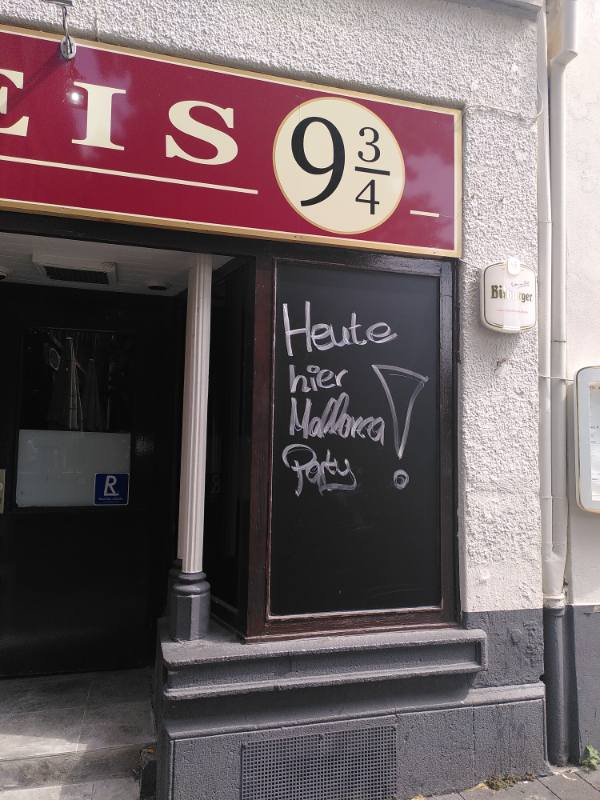 EIS 9 3/4
Heute
hier
Mallorca
Party !
Bitburger
R